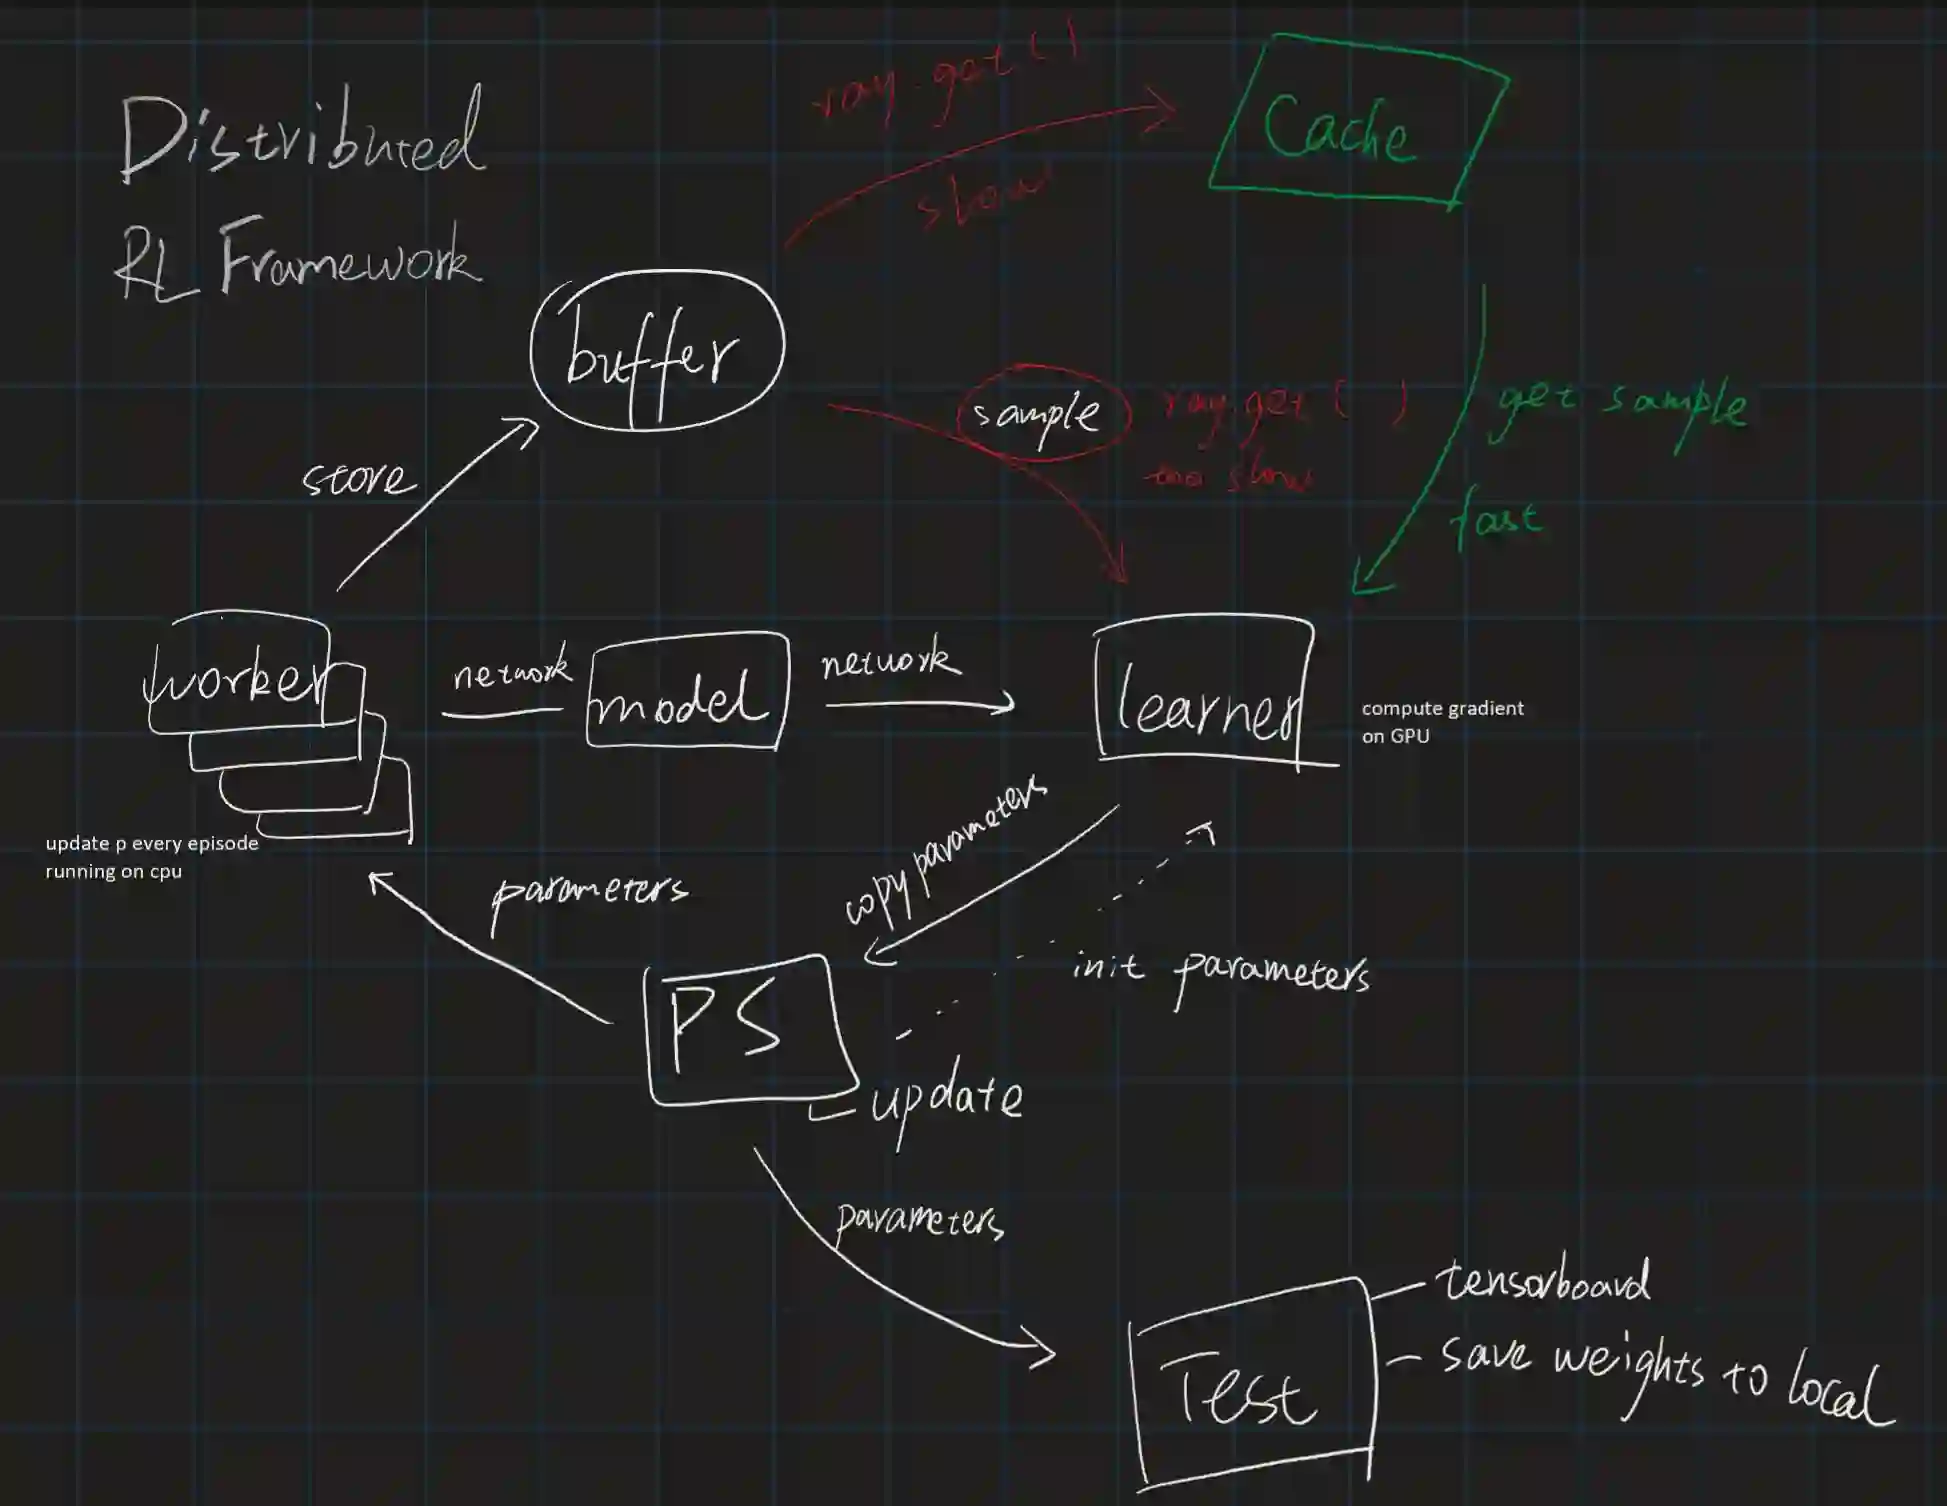 Distributed
RL Framework
ray.get()
slow
Cache
buffer
sample
ray.get( )
too slow
get sample
fast
store
worker
network
model
network
learner
compute gradient
on GPU
update p every episode
running on cpu
parameters
copy parameters
init parameters
PS
update
parameters
Test
tensorboard
save weights to local